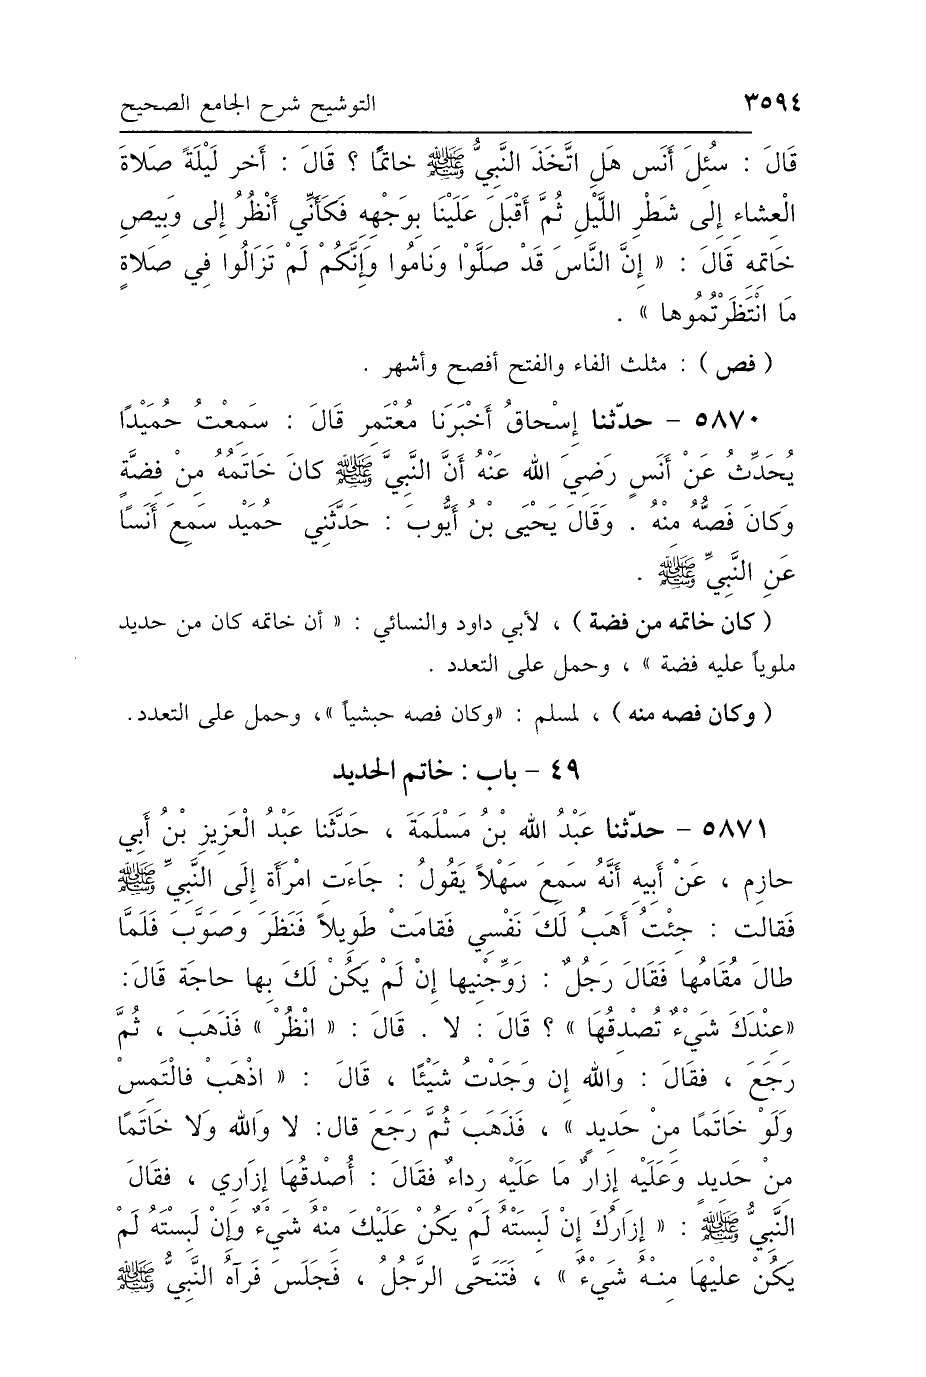 ٣٥٩٤ التوشيح شرح الجامع الصحيح
قَالَ : سُئِلَ أَنَس هَلِ اتَّخَذَ النَّبِيُّ ﷺ خاتمًا ؟ قَالَ : أَخر لَيْلَةً صَلاةَ
الْعِشاءِ إلى شَطْرِ اللَّيْلِ ثُمَّ أَقْبَلَ عَلَيْنَا بوَجْهِهِ فَكَأَنِّي أَنْظُرُ إلى وَبيصِ
خاتمِهِ قَالَ : « إنَّ النَّاسَ قَدْ صَلَّوْا وَنامُوا وَإِنَّكُمْ لَمْ تَزَالُوا فِي صَلاةٍ
مَا انْتَظَرْتُمُوها » .
( فص ) : مثلث الفاء والفتح أفصح وأشهر .
٥٨٧٠ – حدّثنا إسْحاقُ أَخْبَرَنَا مُعْتَمِر قَالَ : سَمِعتُ حُمَيْدًا
يُحَدِّثُ عَنْ أَنَسٍ رَضِيَ الله عَنْهُ أَنَّ النَّبِيَّ ﷺ كانَ خَاتَمُهُ مِنْ فِضَّةٍ
وَكَانَ فَصُّهُ مِنْهُ . وَقَالَ يَحْيَى بْنُ أَيُّوبَ : حَدَّثَنِي حُمَيْد سَمِعَ أَنَسًا
عَنِ النَّبِيِّ ﷺ .
( كان خاتمه من فضة ) ، لأبي داود والنسائي : « أن خاتمه كان من حديد
ملوياً عليه فضة » ، وحمل على التعدد .
( وكان فصه منه ) ، لمسلم : «وكان فصه حبشياً»، وحمل على التعدد.
٤٩ – باب : خاتم الحديد
٥٨٧١ – حدّثنا عَبْدُ الله بْنُ مَسْلَمَةَ ، حَدَّثَنا عَبدُ الْعَزِيزِ بْنُ أَبِي
حازِم ، عَنْ أَبِيهِ أَنَّهُ سَمِعَ سَهْلاً يَقُولُ : جَاءَت امْرَأَة إِلَى النَّبِيِّ ﷺ
فَقالت : جِئْتُ أَهَبُ لَكَ نَفْسِي فَقامَتْ طَوِيلاً فَنَظَرَ وَصَوَّبَ فَلَمَّا
طالَ مُقَامُها فَقَالَ رَجُلٌ : زَوِّجْنِيها إنْ لَمْ يَكُنْ لَكَ بها حاجَة قَالَ:
«عِنْدَكَ شَيْءٌ تُصْدِقُهَا » ؟ قَالَ : لا . قَالَ : « انْظُرْ » فَذَهَبَ ، ثُمَّ
رَجَعَ ، فقَالَ : والله إن وَجَدْتُ شَيْئًا ، قَالَ : « اذْهَبْ فالْتَمِسْ
وَلَوْ خَاتَمًا مِنْ حَدِيدٍ » ، فَذَهَبَ ثُمَّ رَجَعَ قال: لا وَالله وَلا خَاتَمًا
مِنْ حَدِيدٍ وَعَلَيْهِ إزارٌ مَا عَلَيْهِ رداءٌ فقَالَ : أُصْدِقُهَا إزَارِي ، فقَالَ
النَّبِيُّ ﷺ : « إزَارُكَ إنْ لَبِسَتْهُ لَمْ يَكُنْ عَلَيْكَ مِنْهُ شَيْءٌ وَإِنْ لَبِسْتَهُ لَمْ
يَكُنْ عليْهَا مِنْهُ شَيْءٌ » ، فَتَنَحَّى الرَّجُلُ ، فَجَلَسَ فَرآهُ النَّبِيُّ ﷺ